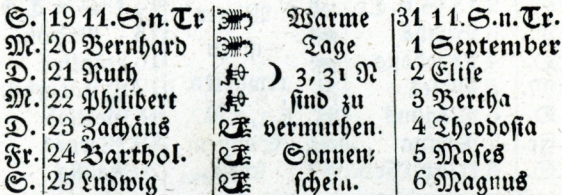 S. 19 11.S.n.Tr Warme 31 11.S.n.Tr.
M. 20 Bernhard Tage 1 September
D. 21 Ruth ☽ 3, 31 N 2 Elise
M. 22 Philibert sind zu 3 Bertha
D. 23 Zachäus vermuthen. 4 Theodosia
Fr. 24 Barthol. Sonnen: 5 Moses
S. 25 Ludwig schein. 6 Magnus